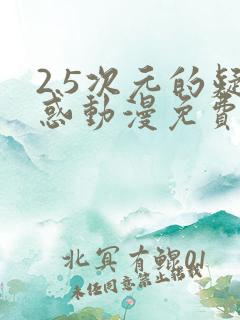 2.5次元的疑
惑動漫免費
北冥有鲲01
未经同意禁止转载